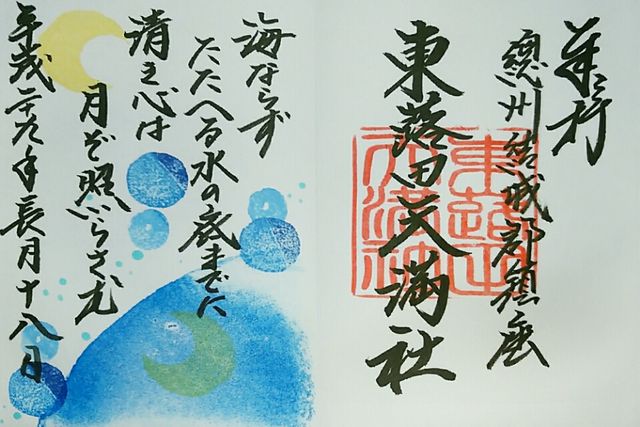 奉拝
總州結城郡鎮座
東蕗田天満社
海ならず
たたへる水の底までに
清き心は
月ぞ照らさむ
平成二十九年長月十八日